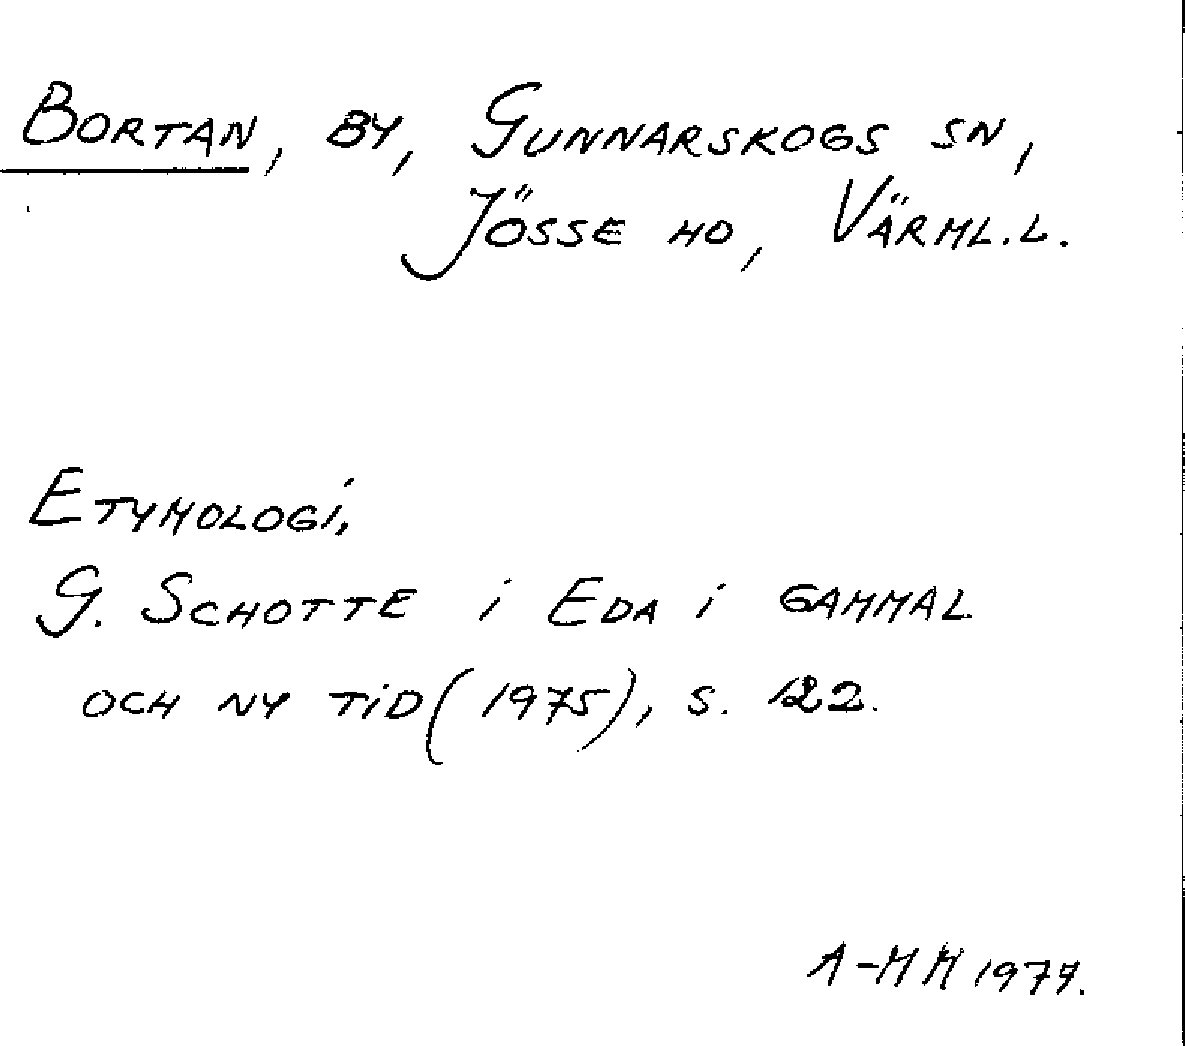 BORTAN, BY, GUNNARSKOGS SN,
JÖSSE HD, VÄRML.L.
ETYMOLOGI,
G. SCHOTTE i EDA i GAMMAL
OCH NY TiD (1975), S. 122.
A-MM 1977.